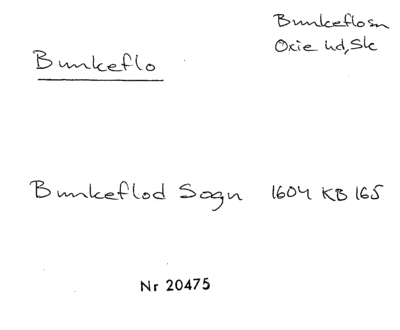 Bunkeflosn
Oxie hd, Sk
Bunkeflo
Bunkeflod Sogn 1604 KB 165
Nr 20475